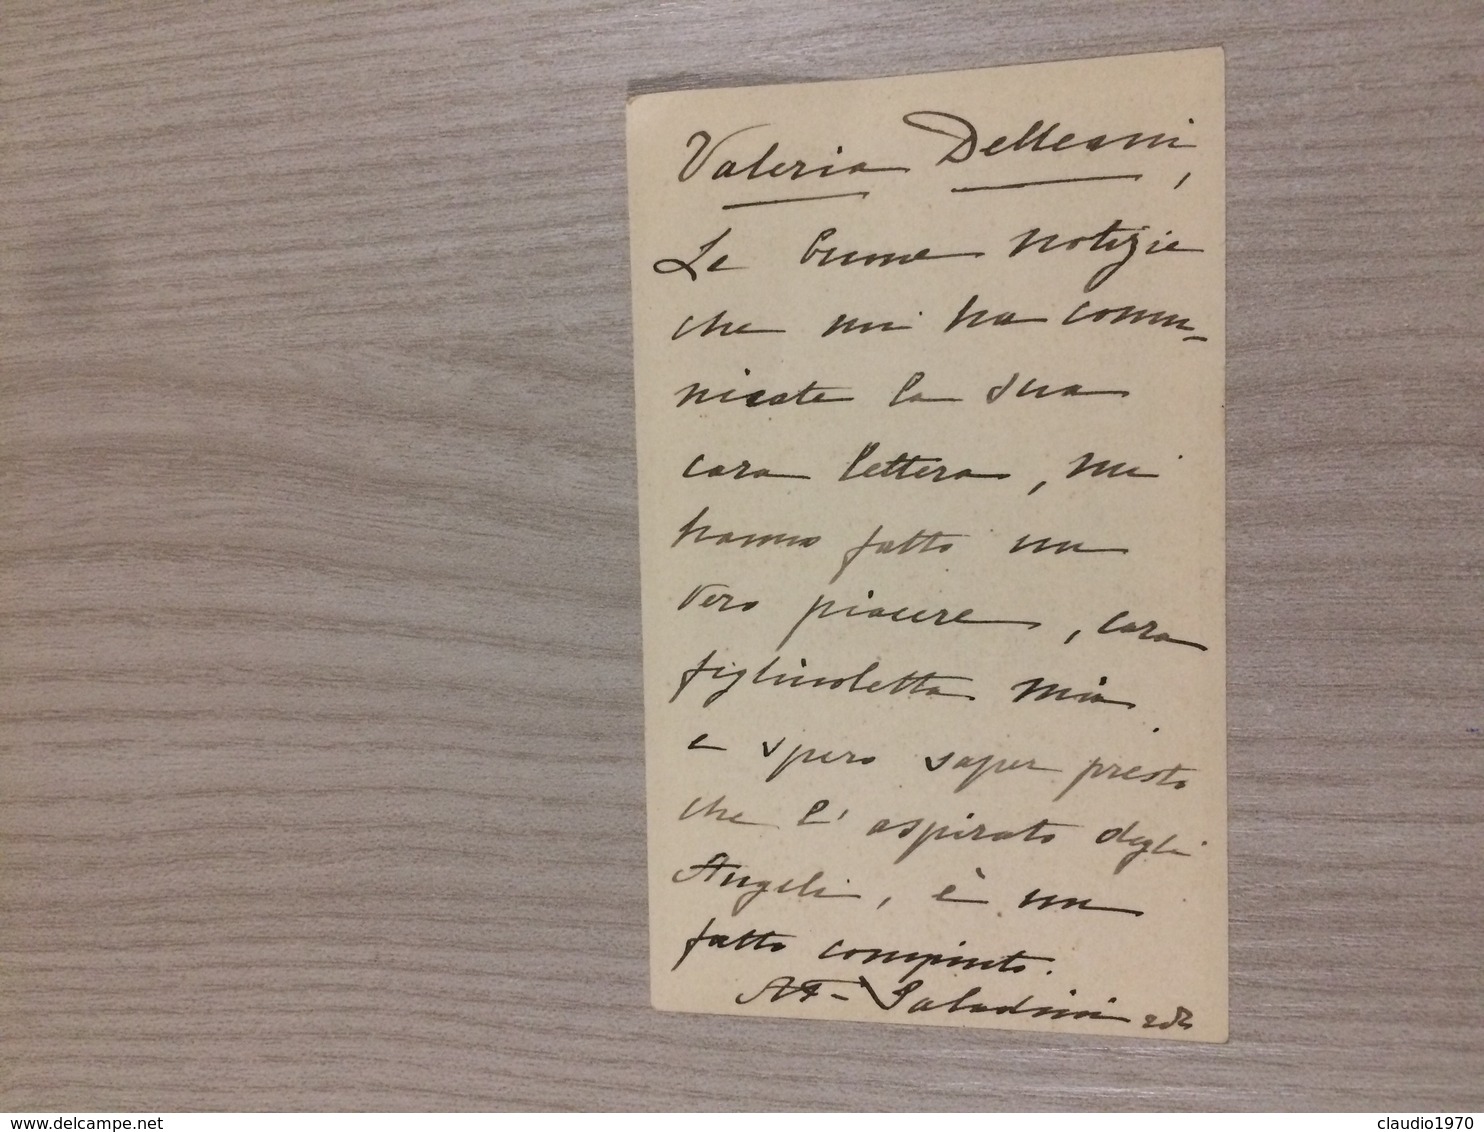 Valeria Delleani,
Le buone notizie
che mi ha comu-
nicate la sua
cara lettera, mi
hanno fatto un
vero piacere, cara
figliuoletta mia
e spero saper presto
che l'aspirato degli
Angeli, è un
fatto compiuto.
Saladini
delcampe.net
claudio1970